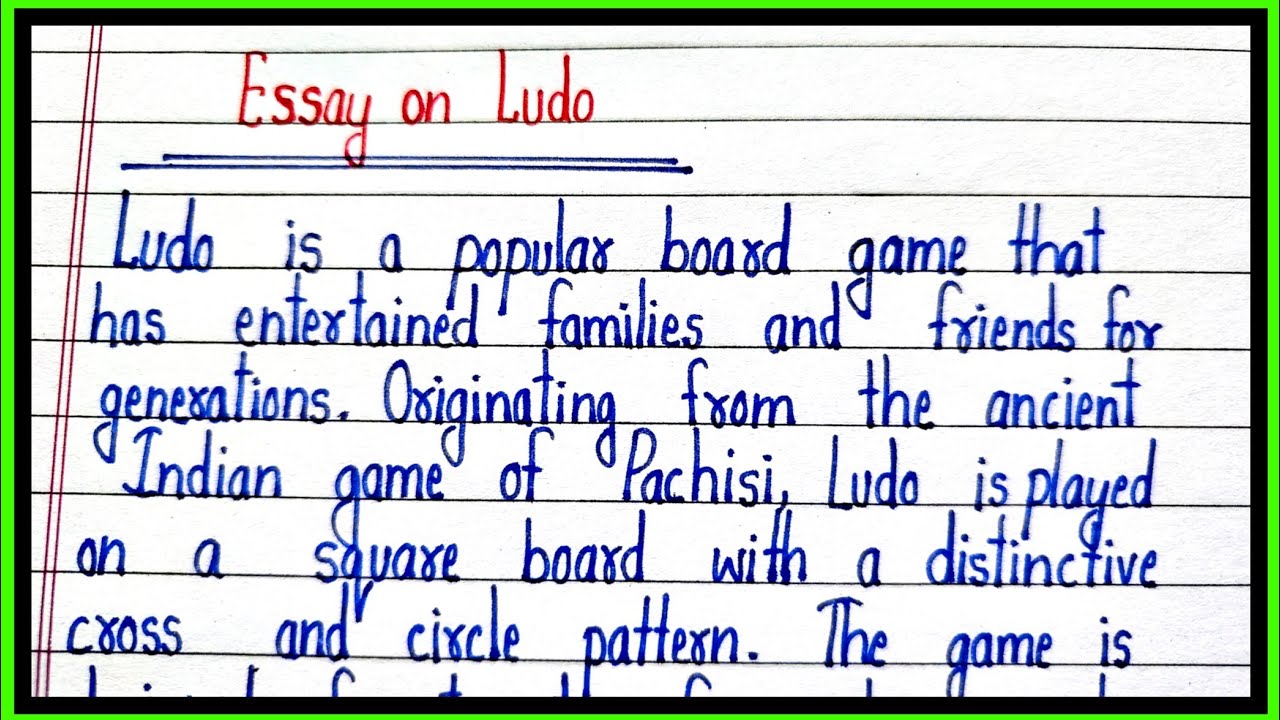 Essay on Ludo
Ludo is a popular board game that
has entertained families and friends for
generations. Originating from the ancient
Indian game of Pachisi, Ludo is played
on a square board with a distinctive
cross and circle pattern. The game is